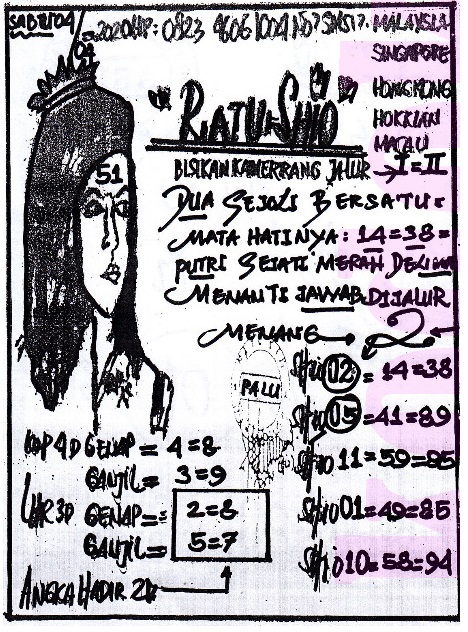 SABTU/04
04
2020 HP: 0823 9606 1004
MALAYSIA
SINGAPORE
HONGKONG
HOKKIAN
MACAU
RATU=SHIO
51
JALUR → I=II
DUA SEJOLI BERSATU:
MATA HATINYA: 14=38=
PUTRI SEJATI MERAH DELIMA
MENANTI JAWAB DIJALUR
MENANG 2
PALU
Shio 02 = 14=38
Shio 05 =41=89
Shio 11=59=95
Shio 01=49=85
Shio 10=58=94
KOP 4D GENAP = 4=8
GANJIL = 3=9
GENAP = 2=8
GANJIL = 5=7
ANGKA HADIR 2D